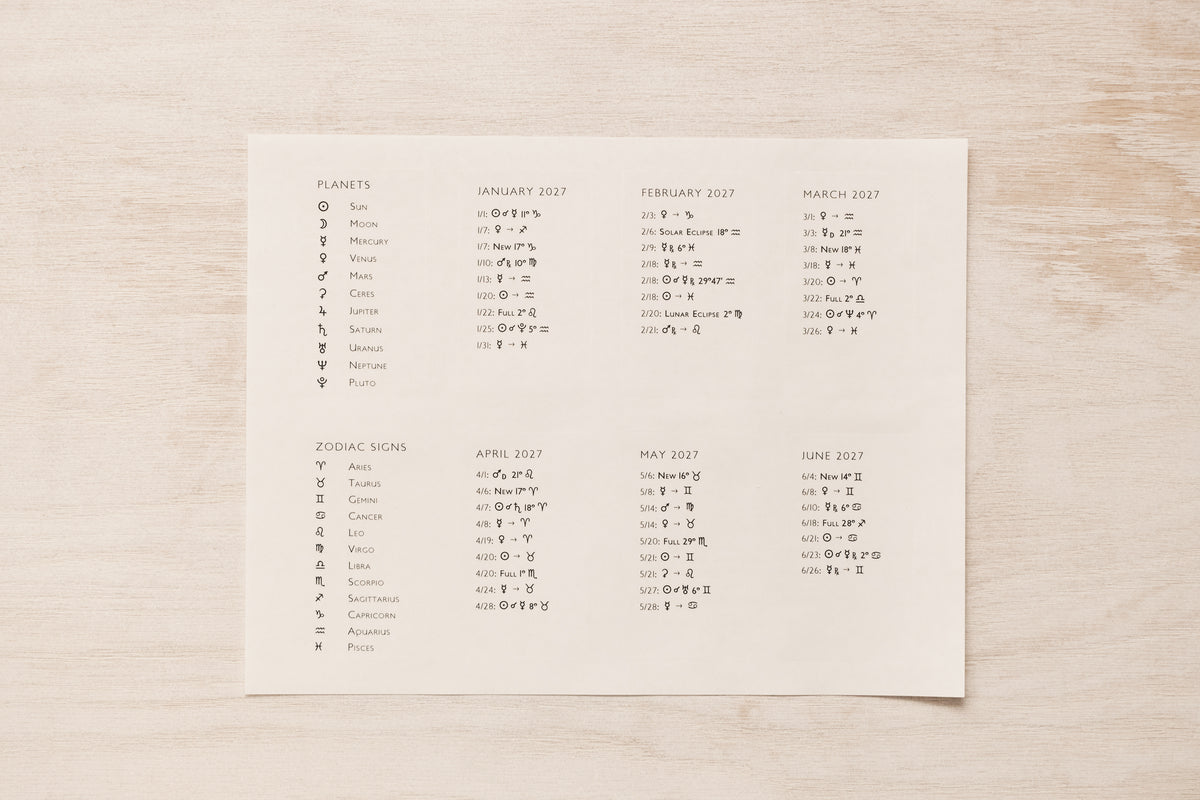 PLANETS
☉ Sun
☽ Moon
☿ Mercury
♀ Venus
♂ Mars
⚳ Ceres
♃ Jupiter
♄ Saturn
♅ Uranus
♆ Neptune
♇ Pluto
JANUARY 2027
1/1: ☉☌☿ 11° ♑
1/7: ♀ → ♐
1/7: New 17° ♑
1/10: ♂℞ 10° ♍
1/13: ☿ → ♒
1/20: ☉ → ♒
1/22: Full 2° ♌
1/25: ☉☌♇ 5° ♒
1/31: ☿ → ♓
FEBRUARY 2027
2/3: ♀ → ♑
2/6: Solar Eclipse 18° ♒
2/9: ☿℞ 6° ♓
2/18: ☿℞ → ♒
2/18: ☉☌☿℞ 29°47' ♒
2/18: ☉ → ♓
2/20: Lunar Eclipse 2° ♍
2/21: ♂℞ → ♌
MARCH 2027
3/1: ♀ → ♒
3/3: ☿D 21° ♒
3/8: New 18° ♓
3/18: ☿ → ♓
3/20: ☉ → ♈
3/22: Full 2° ♎
3/24: ☉☌♆ 4° ♈
3/26: ♀ → ♓
ZODIAC SIGNS
♈ Aries
♉ Taurus
♊ Gemini
♋ Cancer
♌ Leo
♍ Virgo
♎ Libra
♏ Scorpio
♐ Sagittarius
♑ Capricorn
♒ Aquarius
♓ Pisces
APRIL 2027
4/1: ♂D 21° ♌
4/6: New 17° ♈
4/7: ☉☌♄ 18° ♈
4/8: ☿ → ♈
4/19: ♀ → ♈
4/20: ☉ → ♉
4/20: Full 1° ♏
4/24: ☿ → ♉
4/28: ☉☌☿ 8° ♉
MAY 2027
5/6: New 16° ♉
5/8: ☿ → ♊
5/14: ♂ → ♍
5/14: ♀ → ♉
5/20: Full 29° ♏
5/21: ☉ → ♊
5/21: ⚳ → ♌
5/27: ☉☌♅ 6° ♊
5/28: ☿ → ♋
JUNE 2027
6/4: New 14° ♊
6/8: ♀ → ♊
6/10: ☿℞ 6° ♋
6/18: Full 28° ♐
6/21: ☉ → ♋
6/23: ☉☌☿℞ 2° ♋
6/26: ☿℞ → ♊